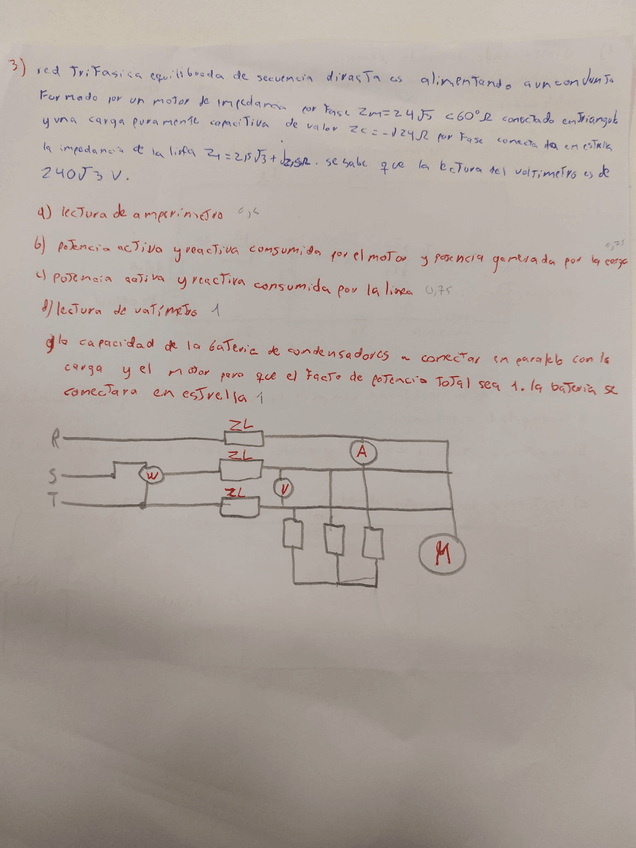 3) red Trifasica equilibrada de secuencia directa es alimentando a un conjunto
Formado por un motor de impedancia por fase Zm=24√3 <60° Ω conectado en triangulo
y una carga puramente capacitiva de valor Zc=-J24Ω por Fase conectada en estrella
la impedancia de la linea ZL=2,5√3+J2,5Ω. se sabe que la lectura del voltimetro es de
240√3 V.
a) lectura de amperimetro
b) potencia activa y reactiva consumida por el motor y potencia generada por la carga 0,75
c) potencia activa y reactiva consumida por la linea 0,75
d) lectura de vatímetro 1
la capacidad de la bateria de condensadores a conectar en paralelo con la
carga y el motor para que el Facto de potencia Total sea 1. la bateria se
conectara en estrella 1
ZL
R
A
ZL
S
W
ZL
V
T
M